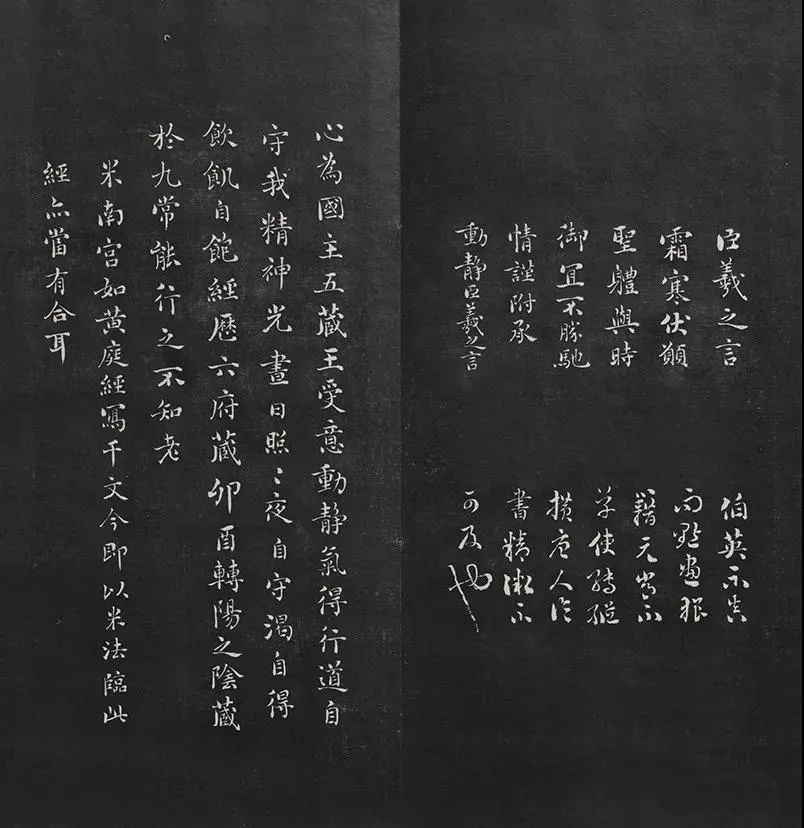 臣羲之言
霜寒伏願
聖體與時
御宜不勝馳
情謹附承
動靜臣羲之言
伯英不真
而點畫狼
籍元常不
草使轉縱
橫唐人
書精微不
可及也
心為國主五藏王受意動靜氣得行道自
守我精神光晝日照〻夜自守渴自得
飲飢自飽經歷六府藏卯酉轉陽之陰藏
於九常能行之不知老
米南宮如黃庭經寫千文今即以米法臨此
經亦當有合耳